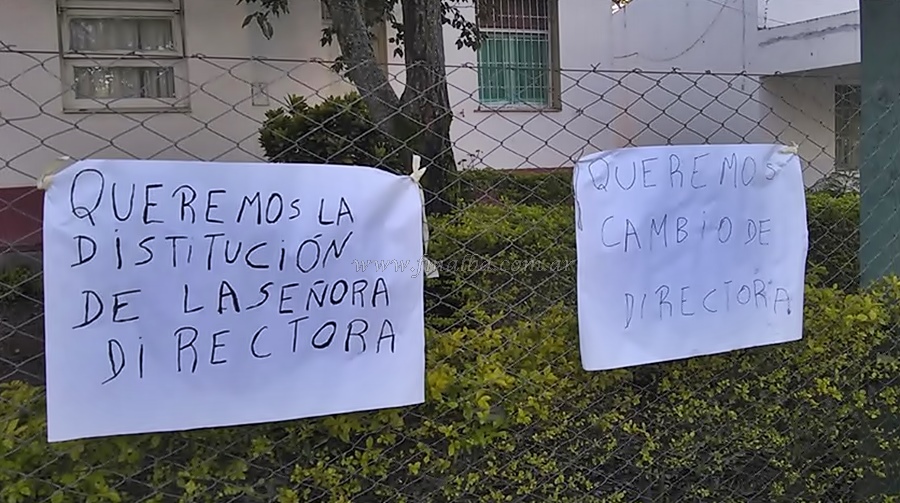 QUEREMOS LA
DISTITUCIÓN
DE LA SEÑORA
DIRECTORA
QUEREMOS
CAMBIO DE
DIRECTORA